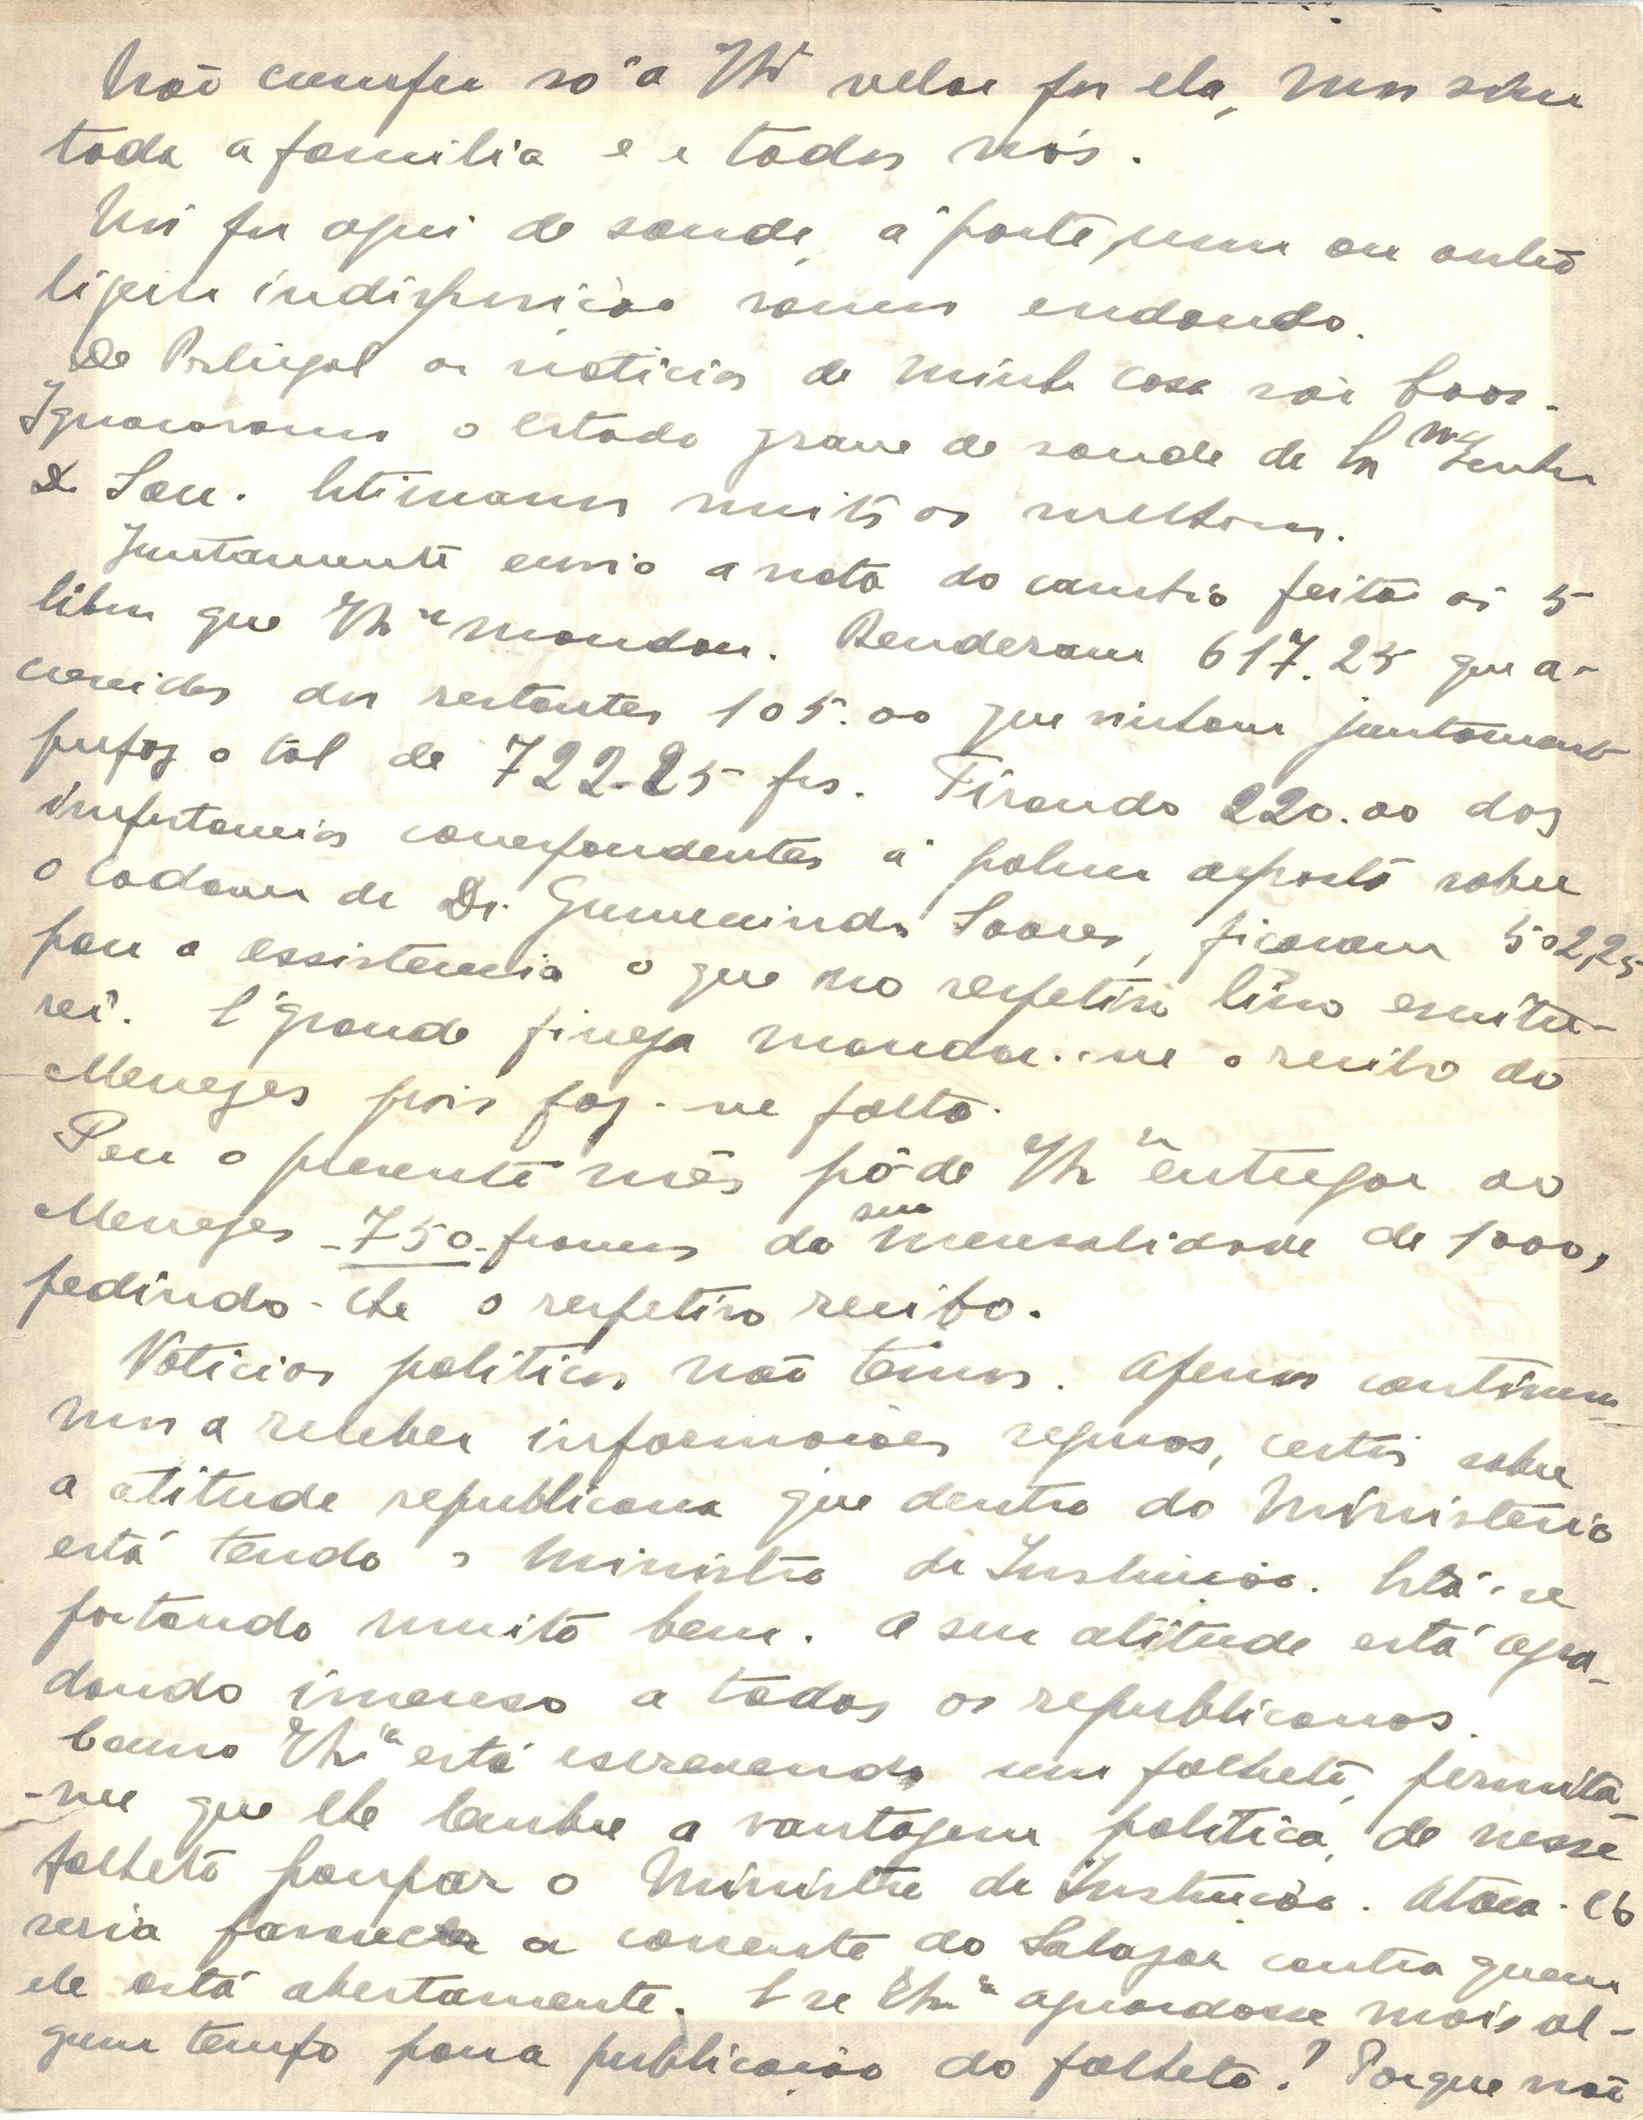 Não cumpre só a V. velar por ela, mas sim
toda a familia e a todos nós.
Nós por aqui de saude, á parte, uma ou outra
ligeira indisposição vamos andando.
De Portugal as noticias de minha casa são boas.
Ignoravamos o estado grave de saude de Ex.ma Senhora
D. Estimamos muito as melhoras.
Juntamente envio a nota do cambio feito ás 5
libras que V. Ex.a mandou. Renderam 617.25 que a-
crescidos dos restantes 105.00 que vinham juntamente
prefaz o total de 722.25 frs. Tirando 220.00 das
importancias correspondentes á palma deposta sobre
o cadaver do Dr. Gumercindo Soares, ficaram 502,25
para a assistencia o que no respetivo livro escritu-
rei. É grande fineza mandar-me o recibo do
Menezes pois faz-me falta.
Para o presente mês pó-de V. Ex.a entregar ao
Menezes -750- francos da sua mensalidade de 1000,
pedindo-lhe o respetivo recibo.
Noticias politicas não temos. Apenas continua-
mos a receber informações seguras, certas sobre
a atitude republicana que dentro do Ministerio
está tendo o Ministro da Instrução. Está-se
portando muito bem. A sua atitude está agra-
dando imenso a todos os republicanos.
Como V. Ex.a está escrevendo um folheto, permita-
-me que lhe lembre a vantagem politica, de nesse
folheto poupar o Ministro da Instrução. Ataca-lo
seria favorecer a corrente do Salazar contra quem
ele está abertamente. E se V. Ex.a aguardasse mais al-
gum tempo para a publicação do folheto? Porque não